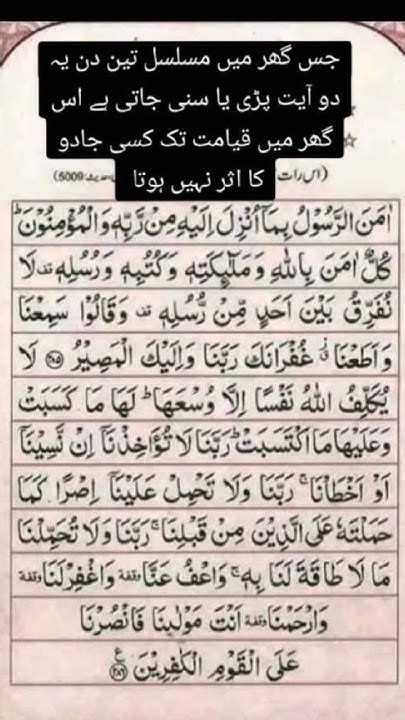 جس گھر میں مسلسل تین دن یہ
دو آیت پڑی یا سنی جاتی ہے اس
گھر میں قیامت تک کسی جادو
کا اثر نہیں ہوتا
(اس رات
حدیث:5009)
اٰمَنَ الرَّسُوْلُ بِمَاۤ اُنْزِلَ اِلَیْهِ مِنْ رَّبِّهٖ وَ الْمُؤْمِنُوْنَؕ
كُلٌّ اٰمَنَ بِاللّٰهِ وَ مَلٰٓىِٕكَتِهٖ وَ كُتُبِهٖ وَ رُسُلِهٖ۫ لَا
نُفَرِّقُ بَیْنَ اَحَدٍ مِّنْ رُّسُلِهٖ۫ وَ قَالُوْا سَمِعْنَا
وَ اَطَعْنَا٘ۗ غُفْرَانَكَ رَبَّنَا وَ اِلَیْكَ الْمَصِیْرُ ۝۲۸۵ لَا
یُكَلِّفُ اللّٰهُ نَفْسًا اِلَّا وُسْعَهَاؕ لَهَا مَا كَسَبَتْ
وَ عَلَیْهَا مَا اكْتَسَبَتْؕ رَبَّنَا لَا تُؤَاخِذْنَاۤ اِنْ نَّسِیْنَاۤ
اَوْ اَخْطَاْنَاۚ رَبَّنَا وَ لَا تَحْمِلْ عَلَیْنَاۤ اِصْرًا كَمَا
حَمَلْتَهٗ عَلَى الَّذِیْنَ مِنْ قَبْلِنَاۚ رَبَّنَا وَ لَا تُحَمِّلْنَا
مَا لَا طَاقَةَ لَنَا بِهٖۚ وَ اعْفُ عَنَّاوقفة وَ اغْفِرْ لَنَاوقفة
وَ ارْحَمْنَاوقفة اَنْتَ مَوْلٰىنَا فَانْصُرْنَا
عَلَى الْقَوْمِ الْكٰفِرِیْنَ۠ ۝۲۸۶